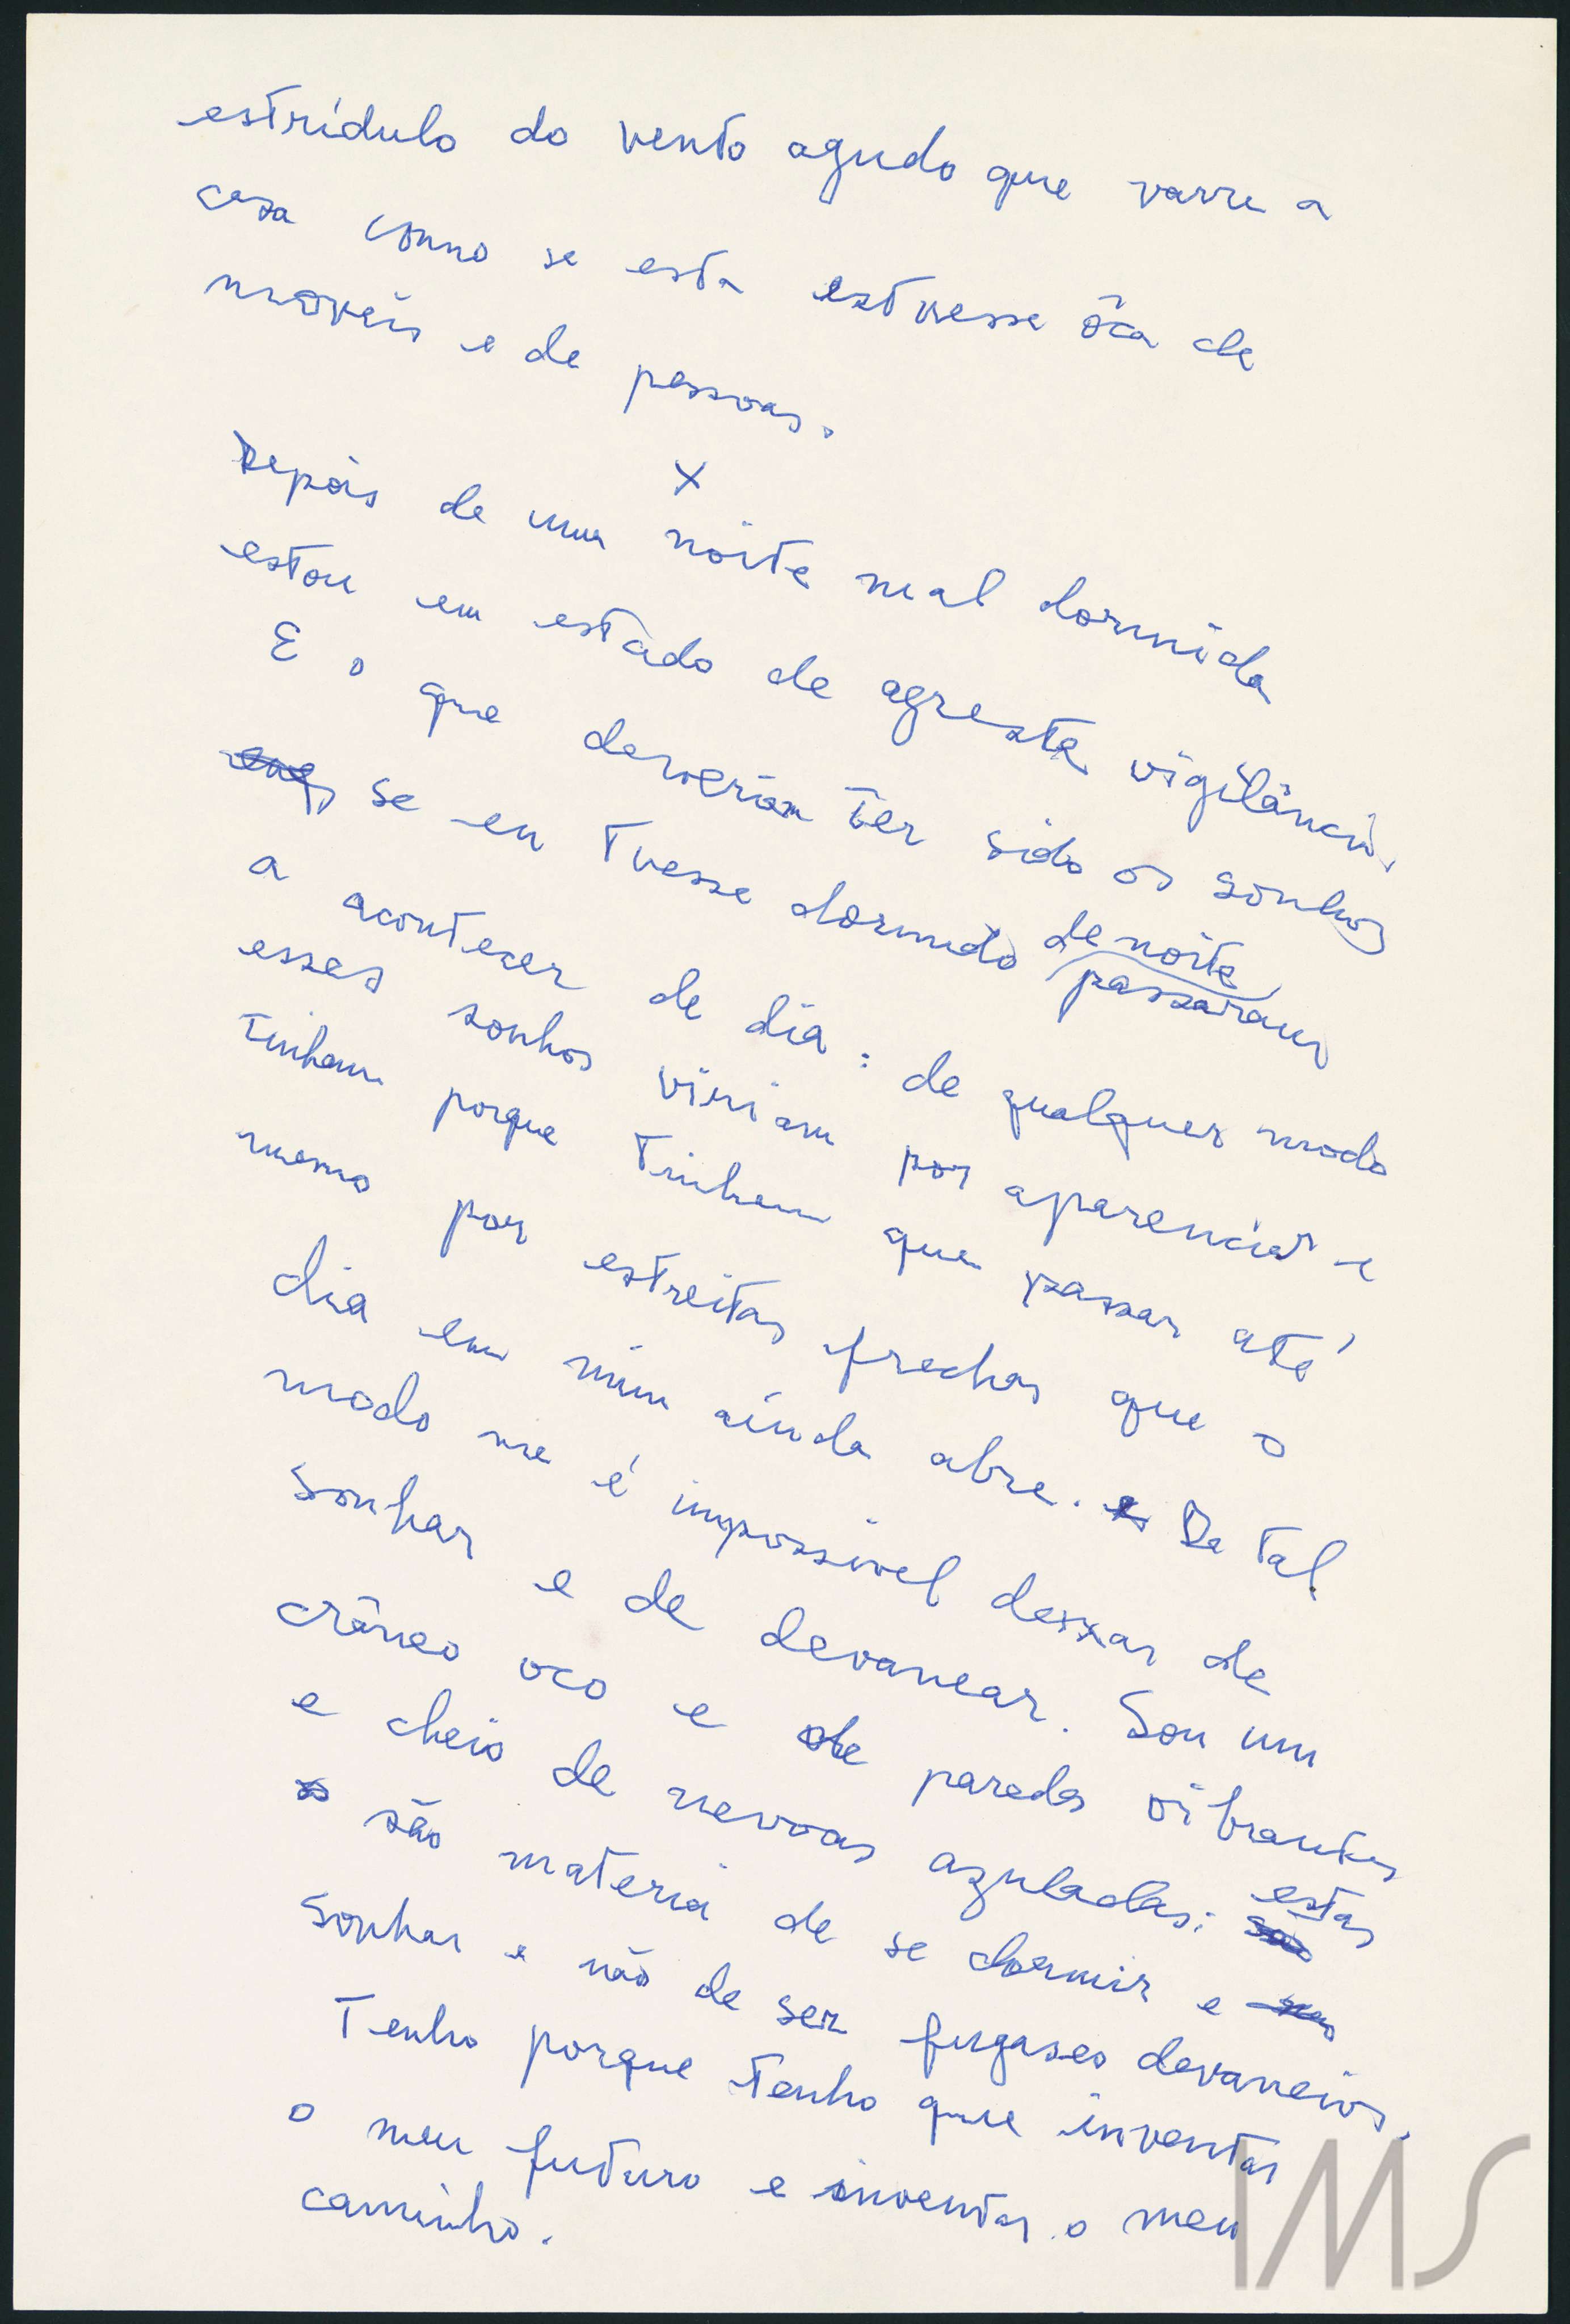 estrídulo do vento agudo que varre a
casa como se esta estivesse ôca de
moveis e de pessoas.
X
Depois de uma noite mal dormida
estou em estado de agreste vigilância.
E o que deveriam ter sido os sonhos
se eu tivesse dormido de noite passaram
a acontecer de dia: de qualquer modo
esses sonhos viriam por aparencias e
tinham porque tinham que passar até
mesmo por estreitas frechas que o
dia em mim ainda abre. De tal
modo me é impossivel deixar de
sonhar e de devanear. Sou um
crâneo oco e de paredes vibrantes
e cheio de nevoas azuladas: estas
são materia de se dormir e
sonhar e não de ser fugases devaneios.
Tenho porque tenho que inventar
o meu futuro e inventar o meu
caminho.
IMS